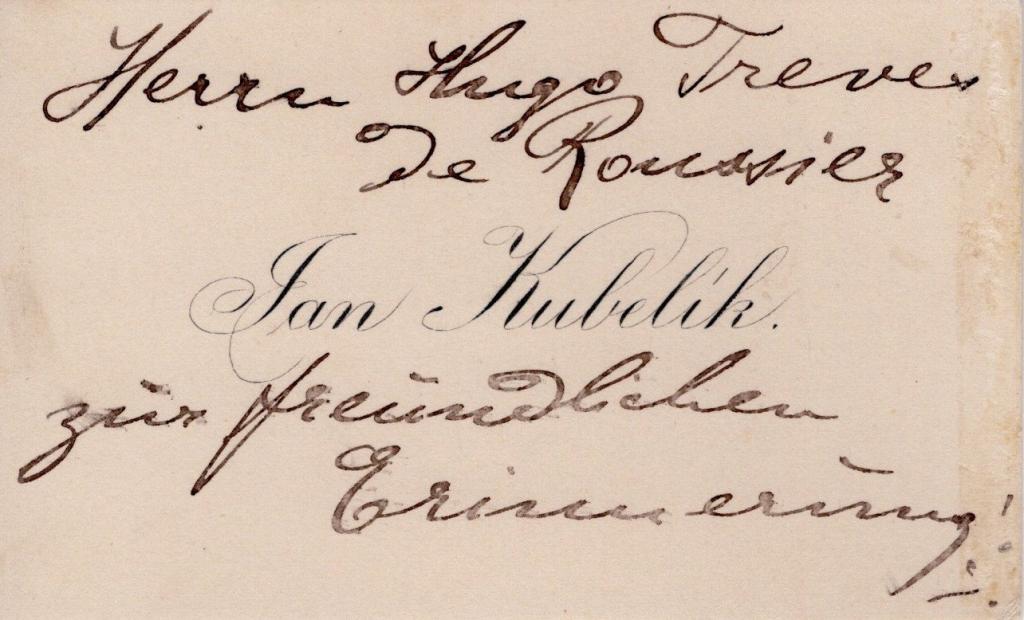 Herrn Hugo Treves
de Roussier
Jan Kubelík.
zur freundlichen
Erinnerung!